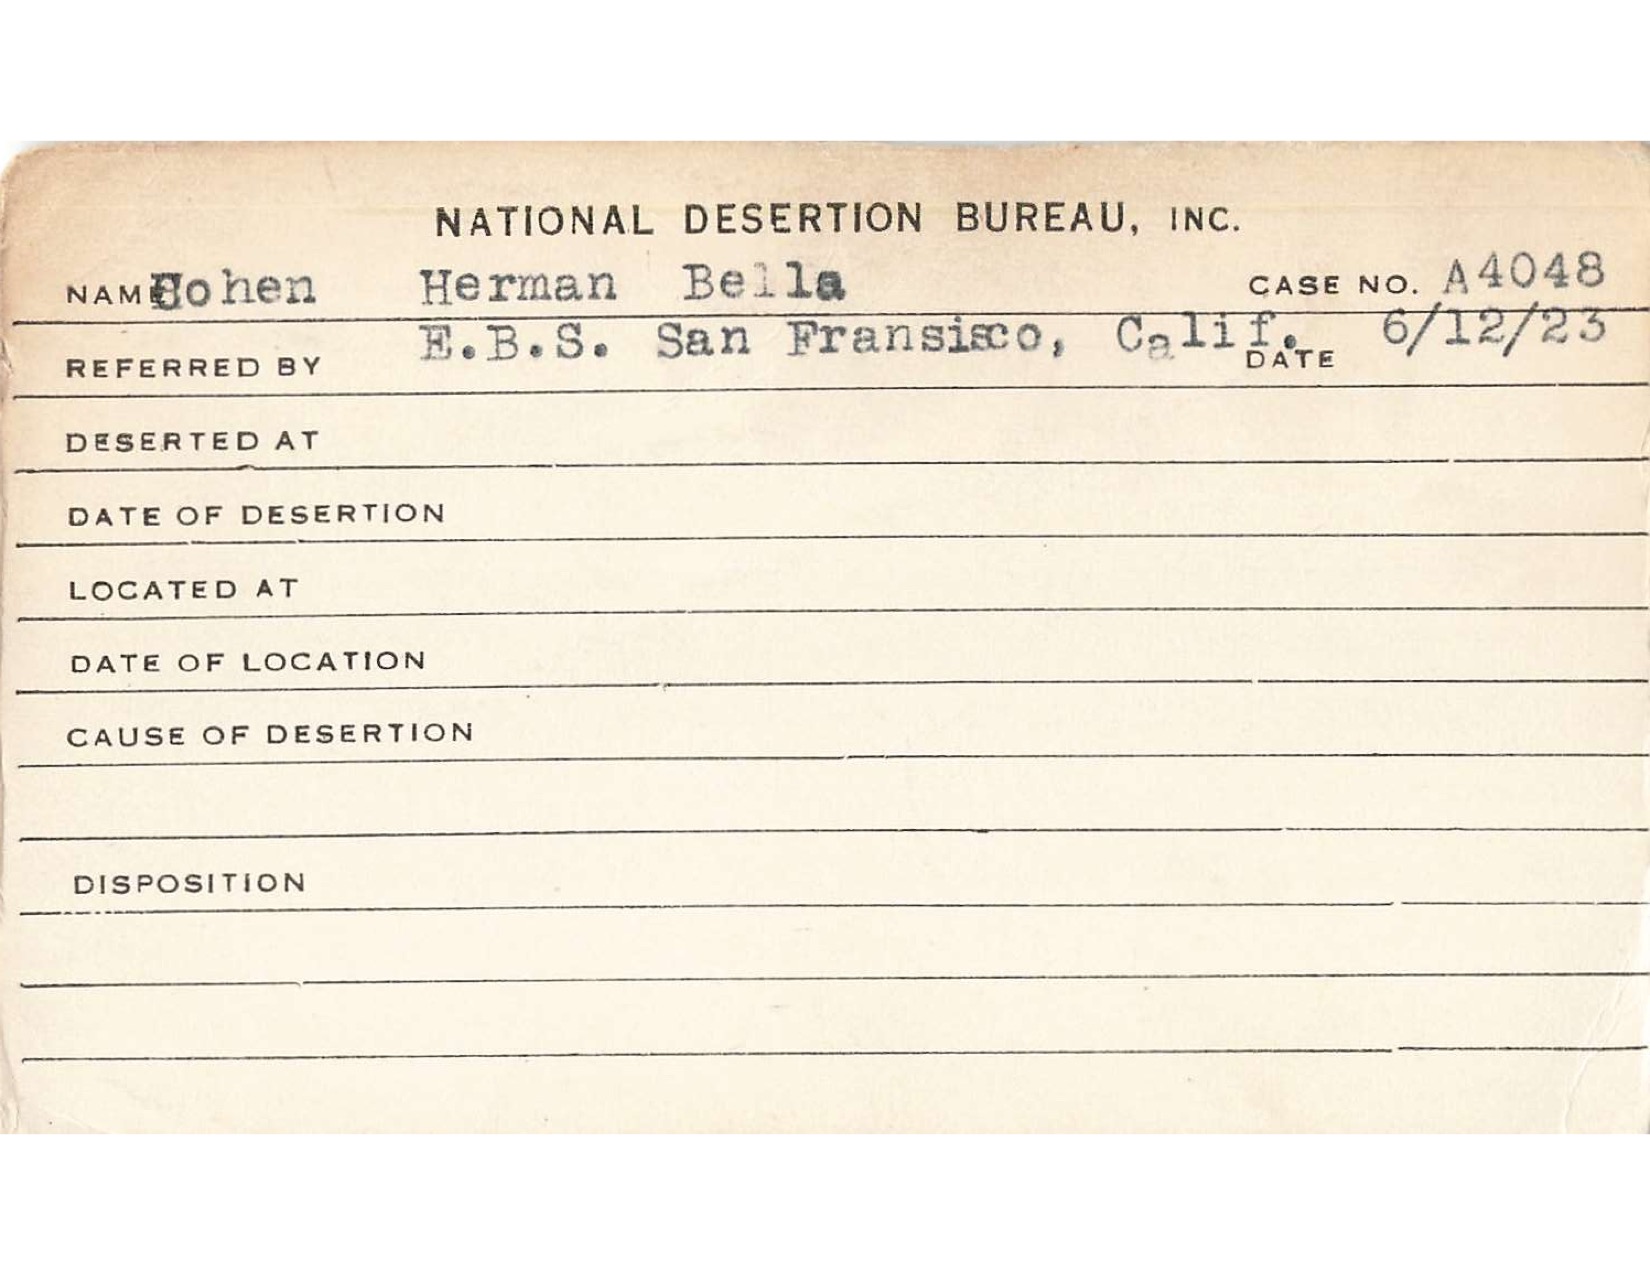 NATIONAL DESERTION BUREAU, INC.
NAME Cohen Herman Bella CASE NO. A4048
REFERRED BY E.B.S. San Fransisco, Calif. DATE 6/12/23
DESERTED AT
DATE OF DESERTION
LOCATED AT
DATE OF LOCATION
CAUSE OF DESERTION
DISPOSITION